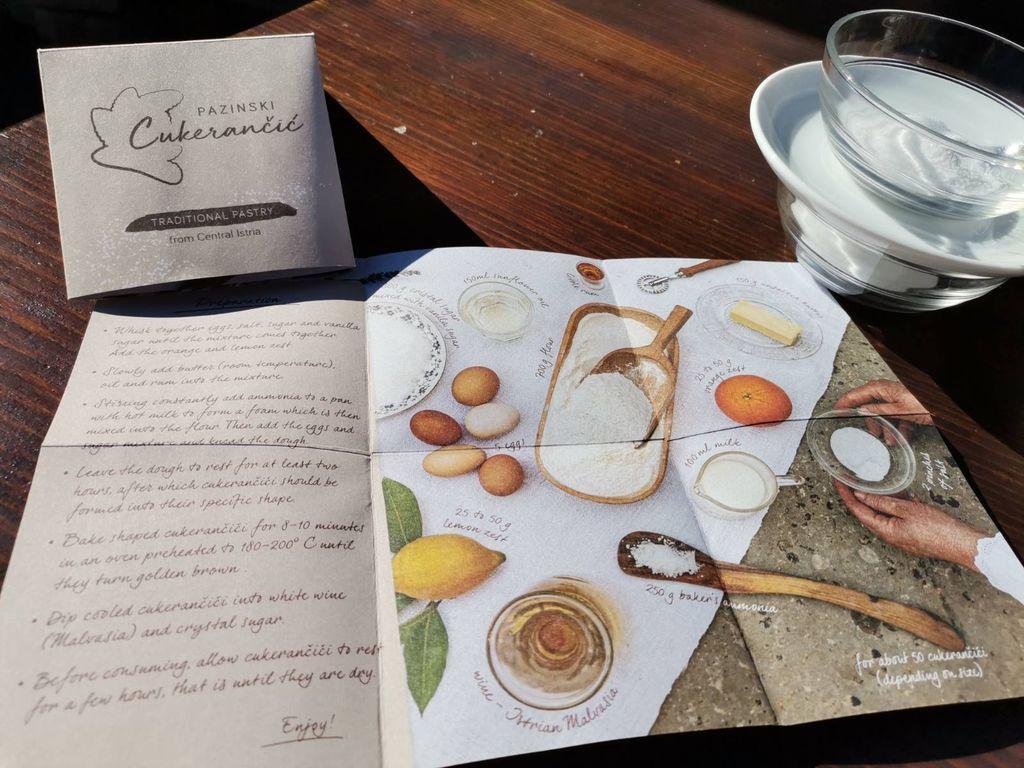 PAZINSKI
Cukerančić
TRADITIONAL PASTRY
from Central Istria
Preparation
• Whisk together eggs, salt, sugar and vanilla
sugar until the mixture comes together.
Add the orange and lemon zest.
• Slowly add butter (room temperature),
oil and rum into the mixture.
• Stirring constantly add ammonia to a pan
with hot milk to form a foam which is then
mixed into the flour. Then add the eggs and
sugar mixture and knead the dough.
• Leave the dough to rest for at least two
hours, after which cukerančići should be
formed into their specific shape.
• Bake shaped cukerančići for 8-10 minutes
in an oven preheated to 180-200° C until
they turn golden brown.
• Dip cooled cukerančići into white wine
(Malvasia) and crystal sugar.
• Before consuming, allow cukerančići to rest
for a few hours, that is until they are dry.
Enjoy!
g crystal sugar
mixed with vanilla sugar
150ml sunflower oil
rum
700g flour
25 to 50 g
orange zest
5 eggs
100ml milk
of salt
25 to 50 g
lemon zest
250 g baker's ammonia
wine - Istrian Malvasia
for about 50 cukerančići
(depending on size)